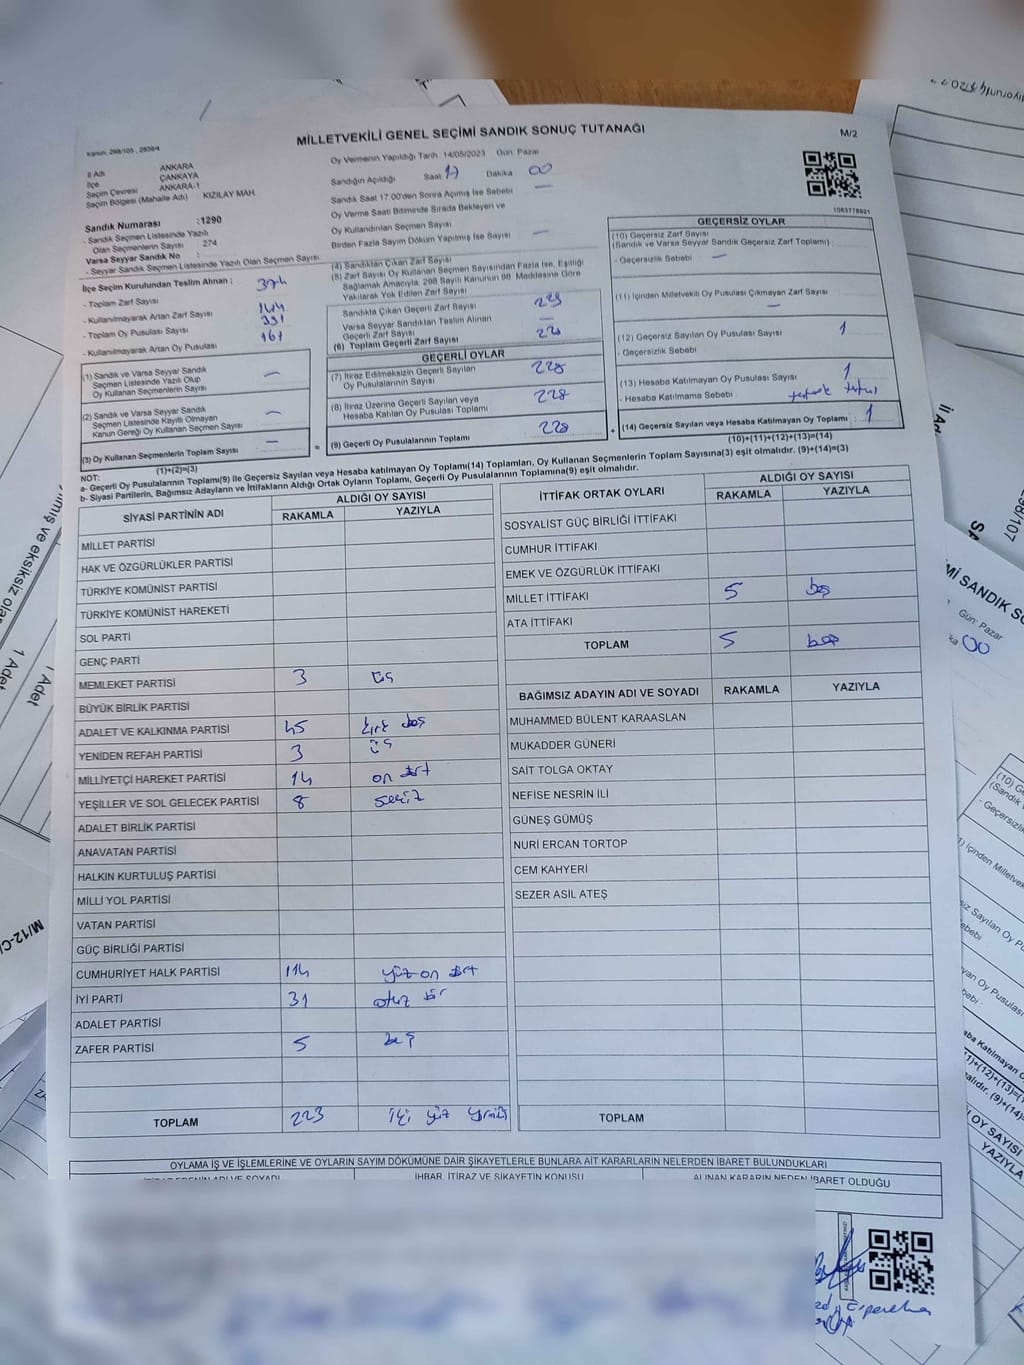 MİLLETVEKİLİ GENEL SEÇİMİ SANDIK SONUÇ TUTANAĞI
M/2
Kanun: 298/105 , 2839/4
İl Adı ANKARA
İlçe ÇANKAYA
Seçim Çevresi ANKARA-1
Seçim Bölgesi (Mahalle Adı) : KIZILAY MAH
Sandık Numarası :1290
- Sandık Seçmen Listesinde Yazılı
Olan Seçmenlerin Sayısı : 274
Varsa Seyyar Sandık No :
- Seyyar Sandık Seçmen Listesinde Yazılı Olan Seçmen Sayısı
Oy Vermenin Yapıldığı Tarih 14/05/2023 Gün: Pazar
Sandığın Açıldığı Saat 17 Dakika 00
Sandık Saat 17:00'den Sonra Açımış İse Sebebi —
Oy Verme Saati Bitiminde Sırada Bekleyen ve
Oy Kullandırılan Seçmen Sayısı
Birden Fazla Sayım Döküm Yapılmış İse Sayısı —
İlçe Seçim Kurulundan Teslim Alınan ;
- Toplam Zarf Sayısı 374
- Kullanılmayarak Artan Zarf Sayısı 144
- Toplam Oy Pusulası Sayısı 391
- Kullanılmayarak Artan Oy Pusulası 161
(1) Sandık ve Varsa Seyyar Sandık
Seçmen Listesinde Yazılı Olup
Oy Kullanan Seçmenlerin Sayısı —
(2) Sandık ve Varsa Seyyar Sandık
Seçmen Listesinde Kayıtlı Olmayan
Kanun Gereği Oy Kullanan Seçmen Sayısı —
(3) Oy Kullanan Seçmenlerin Toplam Sayısı —
(1)+(2)=(3)
(4) Sandıktan Çıkan Zarf Sayısı
(5) Zarf Sayısı Oy Kullanan Seçmen Sayısından Fazla İse, Eşitliği
Sağlamak Amacıyla, 298 Sayılı Kanunun 98. Maddesine Göre
Yakılarak Yok Edilen Zarf Sayısı
Sandıkta Çıkan Geçerli Zarf Sayısı 229
Varsa Seyyar Sandıktan Teslim Alınan
Geçerli Zarf Sayısı —
(6) Toplam Geçerli Zarf Sayısı
GEÇERLİ OYLAR
(7) İtiraz Edilmeksizin Geçerli Sayılan
Oy Pusulalarının Sayısı 228
(8) İtiraz Üzerine Geçerli Sayılan veya
Hesaba Katılan Oy Pusulası Toplamı 228
(9) Geçerli Oy Pusulalarının Toplamı 228
1083778921
GEÇERSİZ OYLAR
(10) Geçersiz Zarf Sayısı
(Sandık ve Varsa Seyyar Sandık Geçersiz Zarf Toplamı)
- Geçersizlik Sebebi —
(11) İçinden Milletvekili Oy Pusulası Çıkmayan Zarf Sayısı
—
(12) Geçersiz Sayılan Oy Pusulası Sayısı 1
- Geçersizlik Sebebi
(13) Hesaba Katılmayan Oy Pusulası Sayısı 1
- Hesaba Katılmama Sebebi
(14) Geçersiz Sayılan veya Hesaba Katılmayan Oy Toplamı : 1
(10)+(11)+(12)+(13)=(14)
NOT:
a- Geçerli Oy Pusulalarının Toplamı(9) ile Geçersiz Sayılan veya Hesaba katılmayan Oy Toplamı(14) Toplamları, Oy Kullanan Seçmenlerin Toplam Sayısına(3) eşit olmalıdır. (9)+(14)=(3)
b- Siyasi Partilerin, Bağımsız Adayların ve İttifakların Aldığı Ortak Oyların Toplamı, Geçerli Oy Pusulalarının Toplamına(9) eşit olmalıdır.
SİYASİ PARTİNİN ADI ALDIĞI OY SAYISI
RAKAMLA YAZIYLA
MİLLET PARTİSİ
HAK VE ÖZGÜRLÜKLER PARTİSİ
TÜRKİYE KOMÜNİST PARTİSİ
TÜRKİYE KOMÜNİST HAREKETİ
SOL PARTİ
GENÇ PARTİ
MEMLEKET PARTİSİ 3 üç
BÜYÜK BİRLİK PARTİSİ
ADALET VE KALKINMA PARTİSİ 45 kırk beş
YENİDEN REFAH PARTİSİ 3 üç
MİLLİYETÇİ HAREKET PARTİSİ 14 on dört
YEŞİLLER VE SOL GELECEK PARTİSİ 8 sekiz
ADALET BİRLİK PARTİSİ
ANAVATAN PARTİSİ
HALKIN KURTULUŞ PARTİSİ
MİLLİ YOL PARTİSİ
VATAN PARTİSİ
GÜÇ BİRLİĞİ PARTİSİ
CUMHURİYET HALK PARTİSİ 114 yüz on dört
İYİ PARTİ 31 otuz bir
ADALET PARTİSİ
ZAFER PARTİSİ 5 beş
TOPLAM 223 iki yüz
İTTİFAK ORTAK OYLARI ALDIĞI OY SAYISI
RAKAMLA YAZIYLA
SOSYALİST GÜÇ BİRLİĞİ İTTİFAKI
CUMHUR İTTİFAKI
EMEK VE ÖZGÜRLÜK İTTİFAKI
MİLLET İTTİFAKI 5 beş
ATA İTTİFAKI
TOPLAM 5 beş
BAĞIMSIZ ADAYIN ADI VE SOYADI RAKAMLA YAZIYLA
MUHAMMED BÜLENT KARAASLAN
MUKADDER GÜNERİ
SAİT TOLGA OKTAY
NEFİSE NESRİN İLİ
GÜNEŞ GÜMÜŞ
NURİ ERCAN TORTOP
CEM KAHYERİ
SEZER ASİL ATEŞ
TOPLAM
OYLAMA İŞ VE İŞLEMLERİNE VE OYLARIN SAYIM DÖKÜMÜNE DAİR ŞİKAYETLERLE BUNLARA AİT KARARLARIN NELERDEN İBARET BULUNDUKLARI
İHBAR, İTİRAZ VE ŞİKAYETİN KONUSU ALINAN KARARIN NEDEN İBARET OLDUĞU